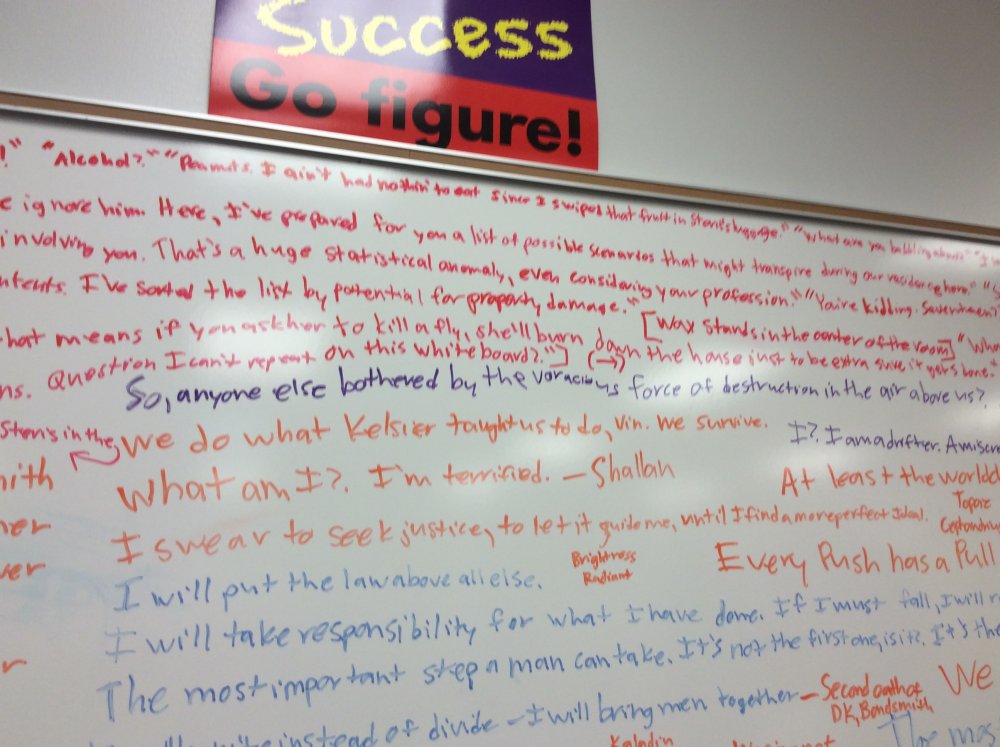 Success
Go figure!
!" "Alcohol?" "Peanuts. I ain't had nothin' to eat since I swiped that fruit in Steris's luggage." "What are you babbling about?" "I
e ignore him. Here, I've prepared for you a list of possible scenarios that might transpire during our residence here."
involving you. That's a huge statistical anomaly, even considering your profession." "You're kidding. Seventeen?
ntents. I've sorted the list by potential for property damage." [Wax stands in the center of the room] "Wha
hat means if you ask her to kill a fly, she'll burn down the house just to be extra sure it gets done."
ns. Question I can't repeat on this whiteboard?"] (→)
So, anyone else bothered by the voracious force of destruction in the air above us?
Steris in the
We do what Kelsier taught us to do, Vin. We survive.
I? I am a drifter. A miscre
What am I? I'm terrified. — Shallan
At least the world
I swear to seek justice, to let it guide me, until I find a more perfect Ideal.
Topaz
Brightness
Radiant
Every Push has a Pull
I will put the law above all else.
I will take responsibility for what I have done. If I must fall, I will r
The most important step a man can take. It's not the first one, is it? It's the
Second oath of
DK, Bondsmith
We
instead of divide - I will bring men together
The mos
Kaladin